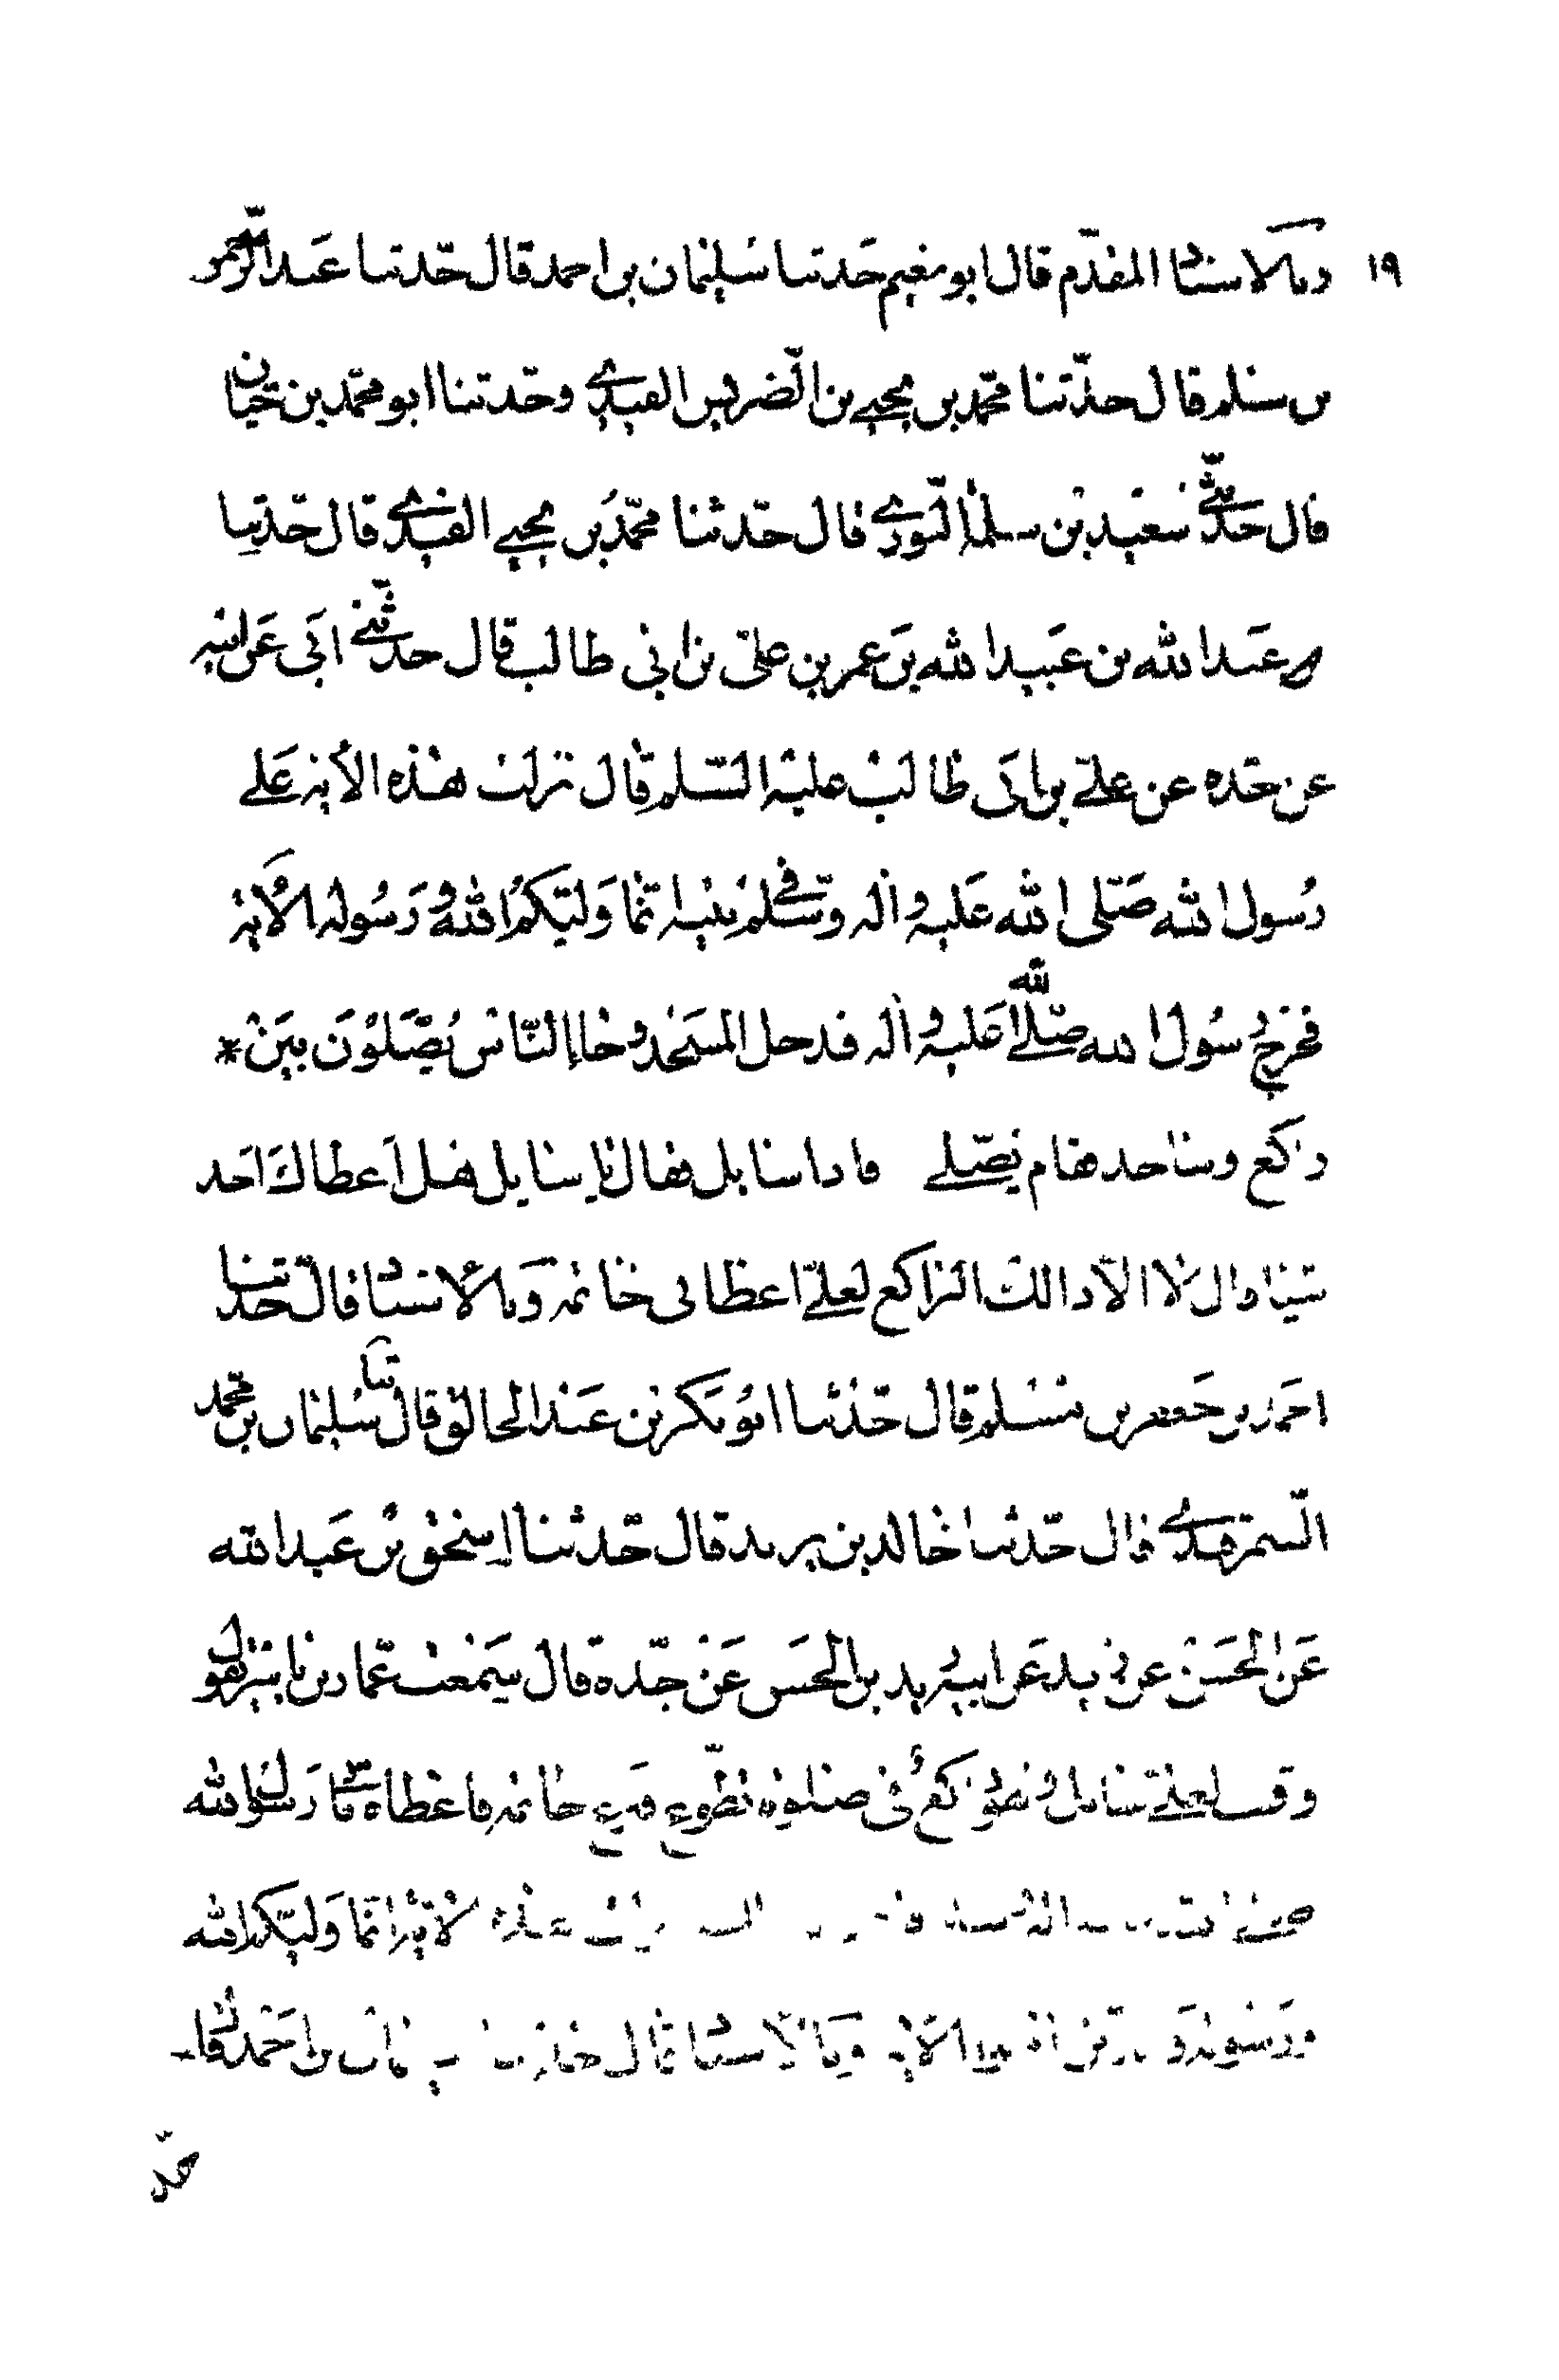 ١٩ وبالاسناد المقدم قال ابو نعيم حدثنا سليمان بن احمد قال حدثنا عبد الرحمن
بن سلم قال حدثنا محمد بن يحيى بن الضريس الفيدي وحدثنا ابو محمد بن حيان
قال حدثني سعيد بن سلمة الثوري قال حدثنا محمد بن يحيى الفيدي قال حدثنا
عبد الله بن عبيد الله بن عمر بن علي بن ابي طالب قال حدثني ابي عن ابيه
عن جده عن علي بن ابي طالب عليه السلم قال نزلت هذه الآية على
رسول الله صلى الله عليه وآله وسلم في بيته انما وليكم الله ورسوله الآية
فخرج رسول الله صلى الله عليه وآله فدخل المسجد وجاء الناس يصلون بين *
راكع وساجد فقام يصلي فاذا سايل فقال يا سايل هل اعطاك احد
شيئا قال لا الا ذالك الراكع لعلي اعطاني خاتمه وبالاسناد قال حدثنا
احمد بن جعفر بن مسلم قال حدثنا ابو بكر بن عبد الخالق قال ثنا سليمان بن محمد
السمرقندي قال حدثنا خالد بن يزيد قال حدثنا اسحق بن عبد الله
عن الحسن عن زيد عن ابيه زيد بن الحسن عن جده قال سمعت عمار بن ياسر يقول
وقف لعلي سايل وهو راكع في صلوة تطوع فنزع خاتمه فاعطاه فاتا رسول الله
الآية انما وليكم الله
ورسوله الآية وبالاسناد قال بن احمد قال
حد